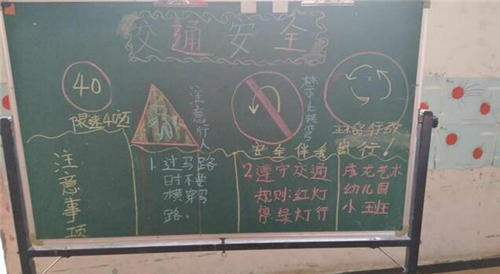 交通安全
40
限速40
注意行人
安全伴我出行！
注意事项
1.过马路
时不要
横穿马
路。
2.遵守交通
规则:红灯
停绿灯行
成龙艺术
幼儿园
小班